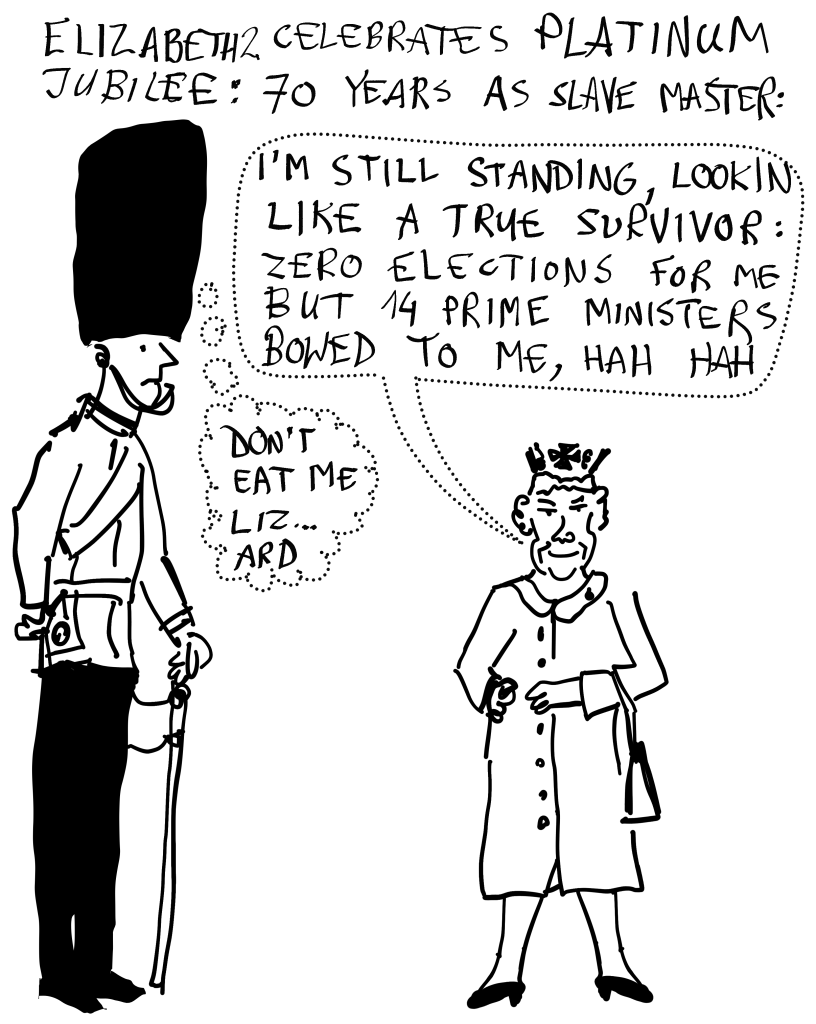 ELIZABETH2 CELEBRATES PLATINUM
JUBILEE: 70 YEARS AS SLAVE MASTER:
I'M STILL STANDING, LOOKIN
LIKE A TRUE SURVIVOR:
ZERO ELECTIONS FOR ME
BUT 14 PRIME MINISTERS
BOWED TO ME, HAH HAH
DON'T
EAT ME
LIZ...
ARD